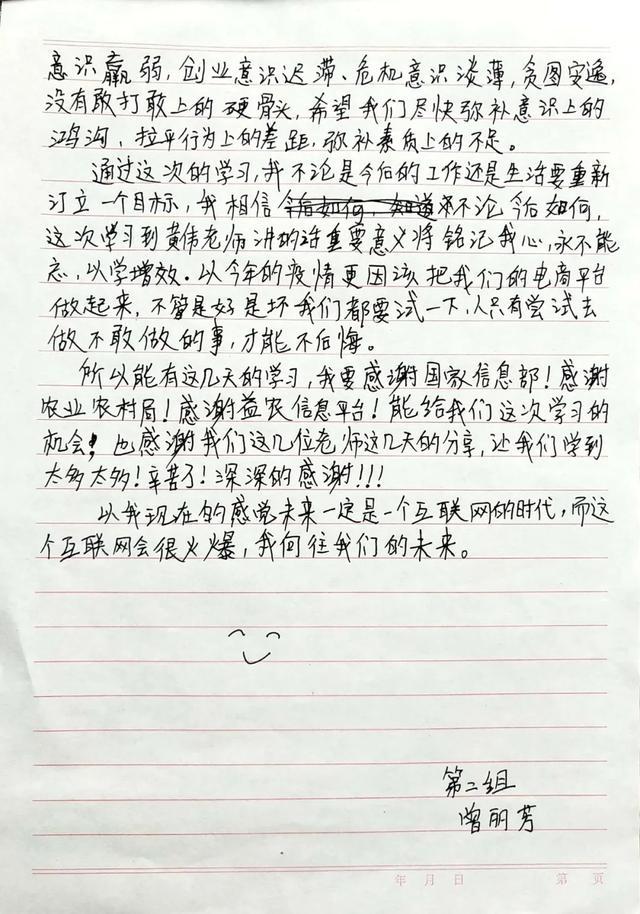 意识羸弱,创业意识迟滞、危机意识淡薄,贪图安逸,
没有敢打敢上的硬骨头,希望我们尽快弥补意识上的
鸿沟、拉平行为上的差距,弥补素质上的不足。
通过这次的学习,我不论是今后的工作还是生活要重新
订立一个目标,我相信不论今后如何,
这次学习到黄伟老师讲的重要意义将铭记我心,永不能
忘,以学增效。以今年的疫情更因该把我们的电商平台
做起来,不管是好是坏我们都要试一下,人只有尝试去
做不敢做的事,才能不后悔。
所以能有这几天的学习,我要感谢国家信息部!感谢
农业农村局!感谢益农信息平台!能给我们这次学习的
机会!也感谢我们这几位老师这几天的分享,让我们学到
太多太多!辛苦了!深深的感谢!!!
以我现在的感觉未来一定是一个互联网的时代,而这
个互联网会很火爆,我向往我们的未来。
第二组
曾丽芳
年 月 日 第 页